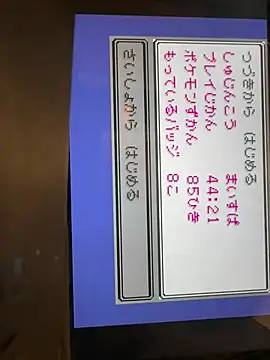 つづきから　はじめる
しゅじんこう　まいすは
プレイじかん　44:21
ポケモンずかん　85ひき
もっているバッジ　8こ
さいしょから　はじめる